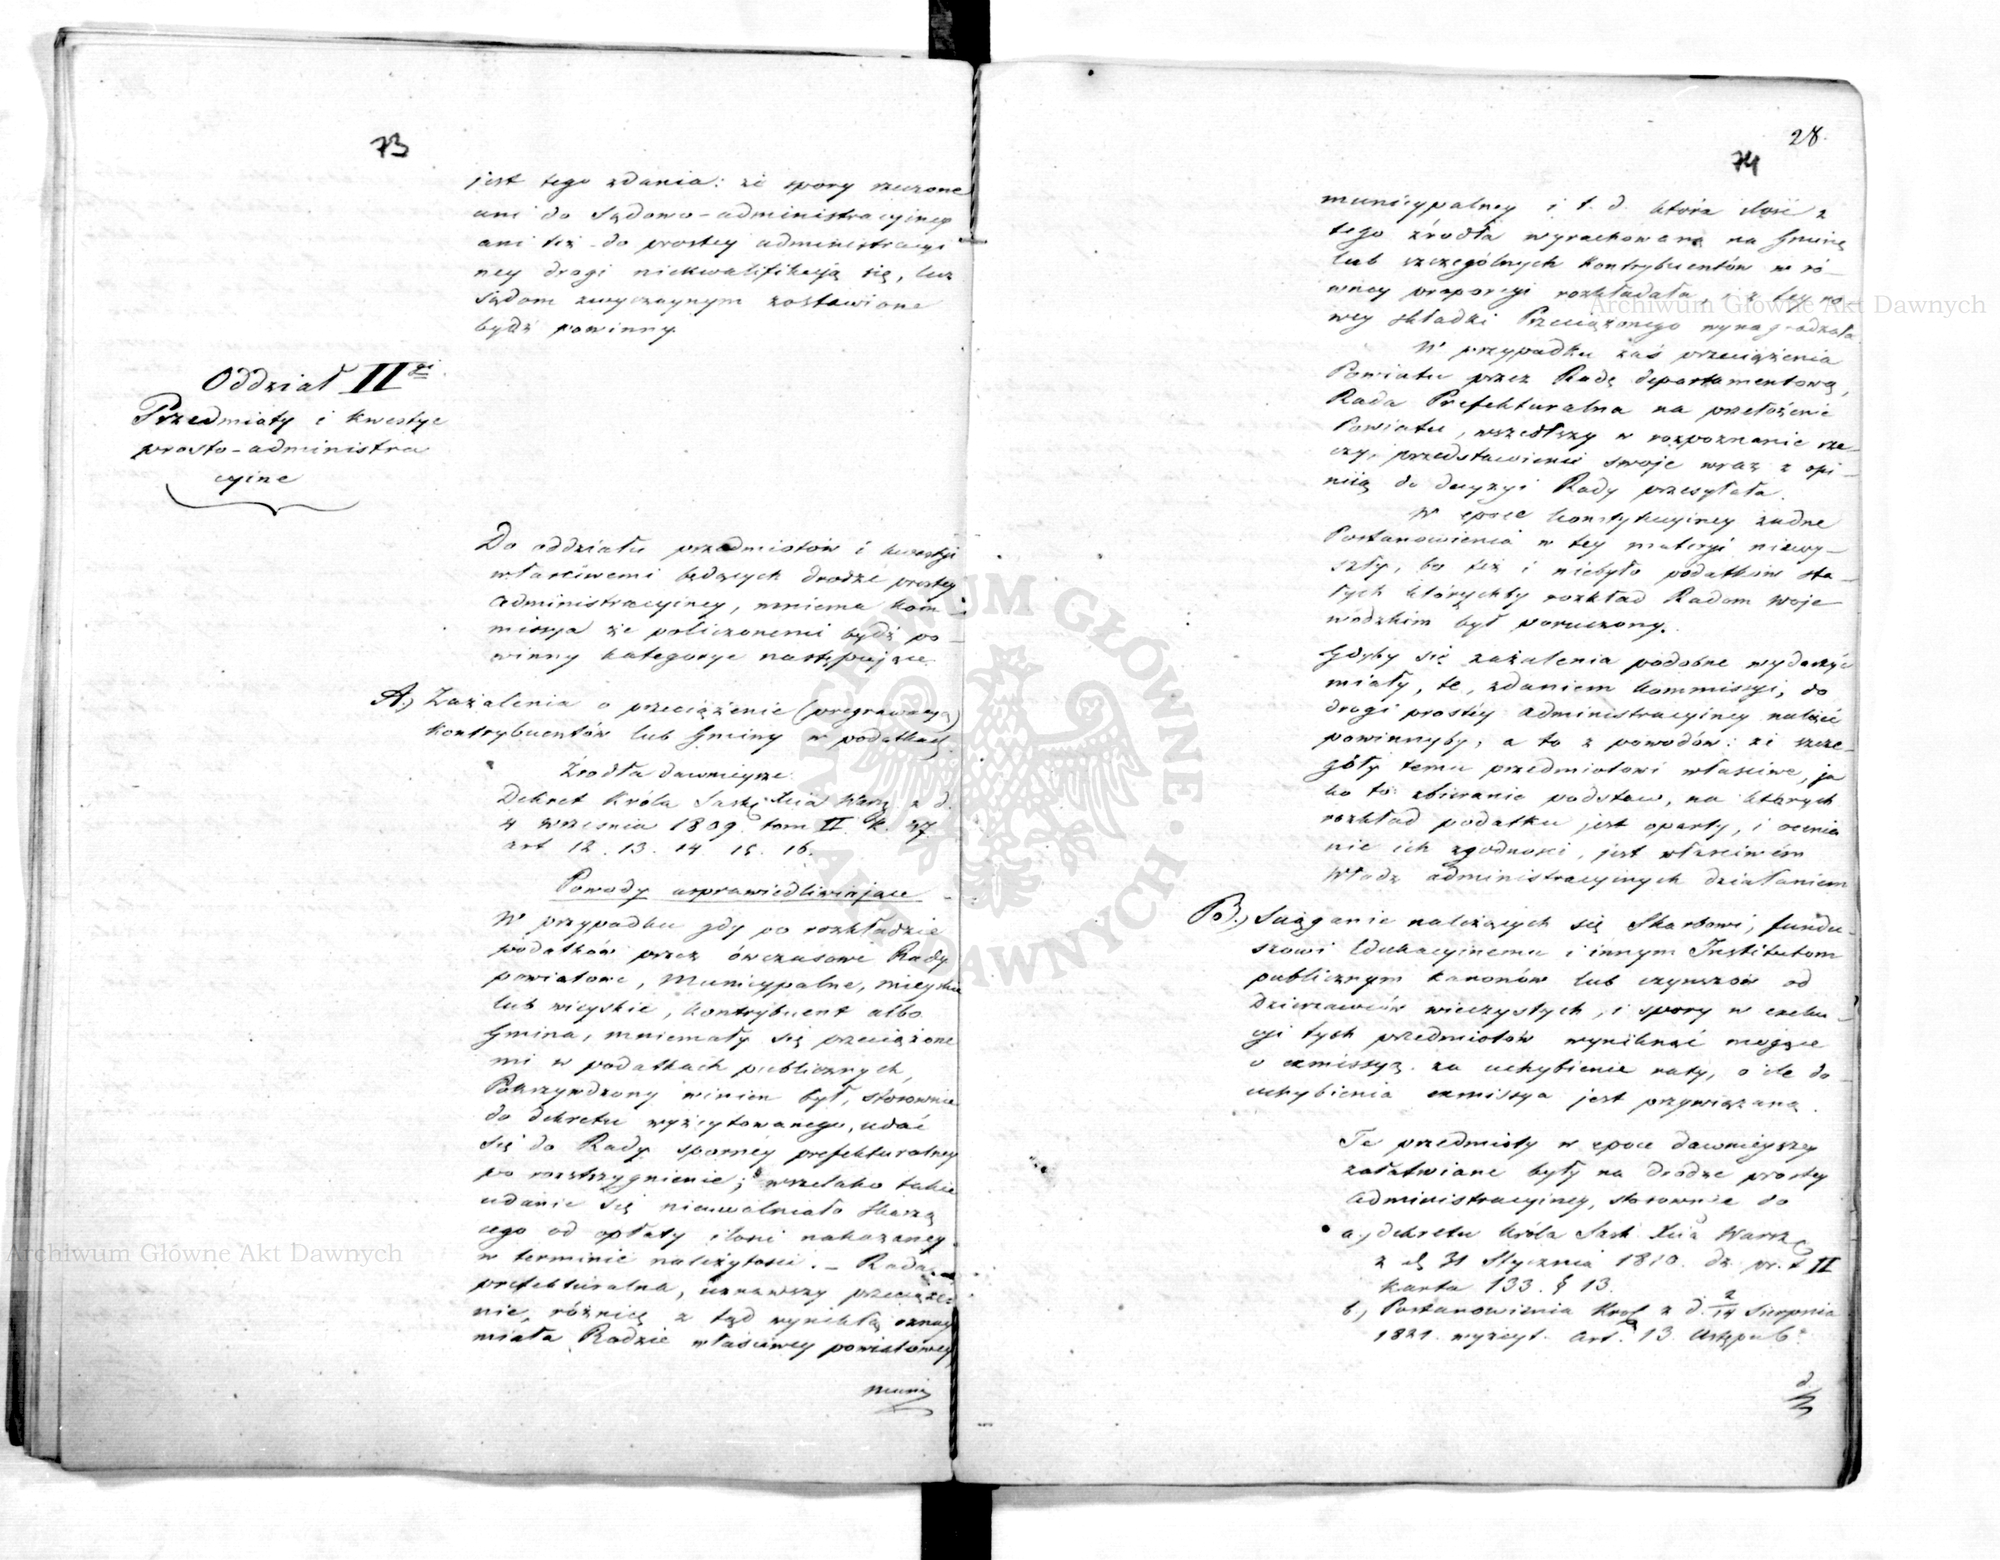 73
jest tego zdania: że spory rzeczone
ani do Sądowo-administracyiney
ani też do prostey administracyi
ney drogi niekwalifikują się, lecz
Sądom zwyczaynym zostawione
bydź powinny.
Oddział II gi.
Przedmioty i kwestye
prosto-administra
cyine
Do oddziału przedmiotów i kwestyi
właściwemi będących drodze prostey
administracyiney, mniema Kom-
missya że policzonemi bydź po-
winny kategorye następujące.
A.) Zażalenia o przeciążenie (pregrawacyą)
Kontrybuentów lub Gminy w podatkach
Źrodła dawnieysze.
Dekret Króla Saskę Xcia Warz. z d.
4 września 1809 tom II k. 47
art 12. 13. 14 15. 16.
Powody usprawiedliwiające
W przypadku gdy po rozkładzie
podatków przez ówczasowe Rady
powiatowe, Municypalne, mieyskie
lub wieyskie, kontrybuent albo
Gmina, mniemały się przeciążone
mi w podatkach publicznych,
Pokrzywdzony winien był, stosownie
do dekretu wyżcytowanego, udać
się do Rady sporney prefekturalney
po rozstrzygnienie; wszelako takie
udanie się nieuwalniało skarżą
cego od opłaty ilości nakazaney
w terminie należytości. – Rada
prefekturalna, uznawszy przeciąże-
nie, różnicę z tąd wynikłą oznay
miała Radzie właściwey powiatowey,
muni
28.
74
municypalney i t. d. która ilość z
tego źrodła wyrachowaną na Gminę
lub szczególnych Kontrybuentów w ró-
wney proporcyi rozkładała, i z tey no
wey składki Przeciążonego wynagradzała
W przypadku zaś przeciążenia
Powiatu przez Radę departamentową,
Rada Prefekturalna na przełożenie
Powiatu, wszedłszy w rozpoznanie rze-
czy, przedstawienie swoje wraz z opi-
niią do decyzyi Rady przesyłała.
W epoce konstytucyiney żadne
Postanowienia w tey materyi niewy-
szły, bo też i niebyło podatków sta-
łych którychby rozkład Radom Woje-
wódzkim był poruczony.
Gdyby się zażalenia podobne wydarzyć
miały, te, zdaniem Kommissyi, do
drogi prostey administracyiney należeć
powinnyby, a to z powodów: że szcze-
góły temu przedmiotowi właściwe, ja
ko to zbieranie podstaw, na których
rozkład podatku jest oparty, i ocenia
nie ich zgodności, jest właściwém
Władz administracyinych działaniem
B.) Ściąganie należących się Skarbowi, fundu-
szowi Edukacyinemu i innym Institutom
publicznym kanonów lub czynszów od
Dzierżawców wieczystych, i spory w exeku-
cyi tych przedmiotów wyniknąć mogące
o exmissyą za uchybienie raty, o ile do
uchybienia exmissya jest przywiązaną.
Te przedmioty w epoce dawnieyszey
załatwiane były na drodze prostey
administracyiney, stosownie do
a.) dekretu Króla Sask. Xcia Warszę
z d. 31 Stycznia 1810. dz. pr. t II
karta 133. § 13.
b.) Postanowienia Król z d. 2/14 Sierpnia
1821. wyżcyt. art. 13. Ustępu b.